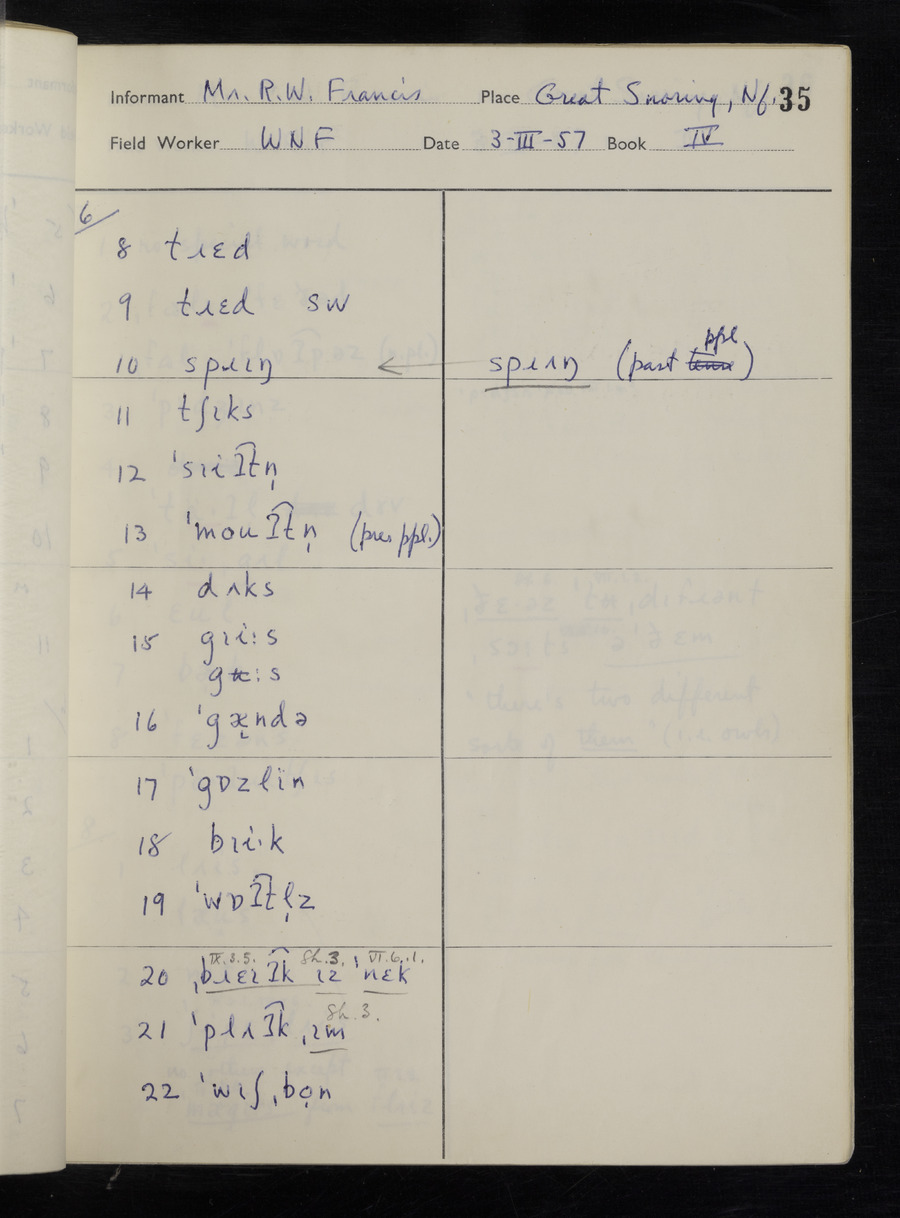 Informant Mr. R.W. Francis Place Great Snoring, Nf. 35
Field Worker WNF Date 3-III-57 Book IV
6/
8 tɹɛd
9 tɹɛd sw
10 spɹɪŋ ← spɹʌŋ (past ppl)
11 tʃɪks
12 ˈsɪiʔ͡tn̩
13 ˈmouʔ͡tn̩ (pres ppl.)
14 dʌks
15 gɪi:s
16 ˈgæ̞ndə
17 ˈgɒzlin
18 bɪi·k
19 ˈwɒʔ͡tl̩z
IX.3.5. Sh.3. VI.6.1.
20 ˌbɹɛɪʔ͡k ɪz ˈnɛk
Sh.3.
21 ˈplʌʔ͡k ˌɪm
22 ˈwɪʃˌbo̞n